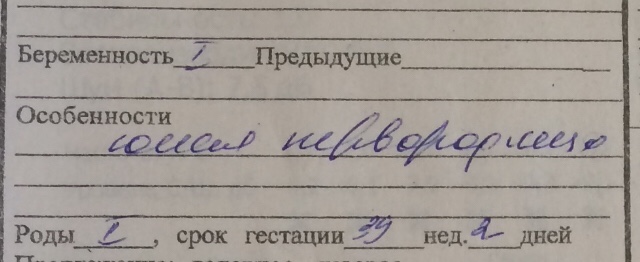 Беременность I Предыдущие
Особенности
юная первородящая
Роды I, срок гестации 39 нед. 2 дней